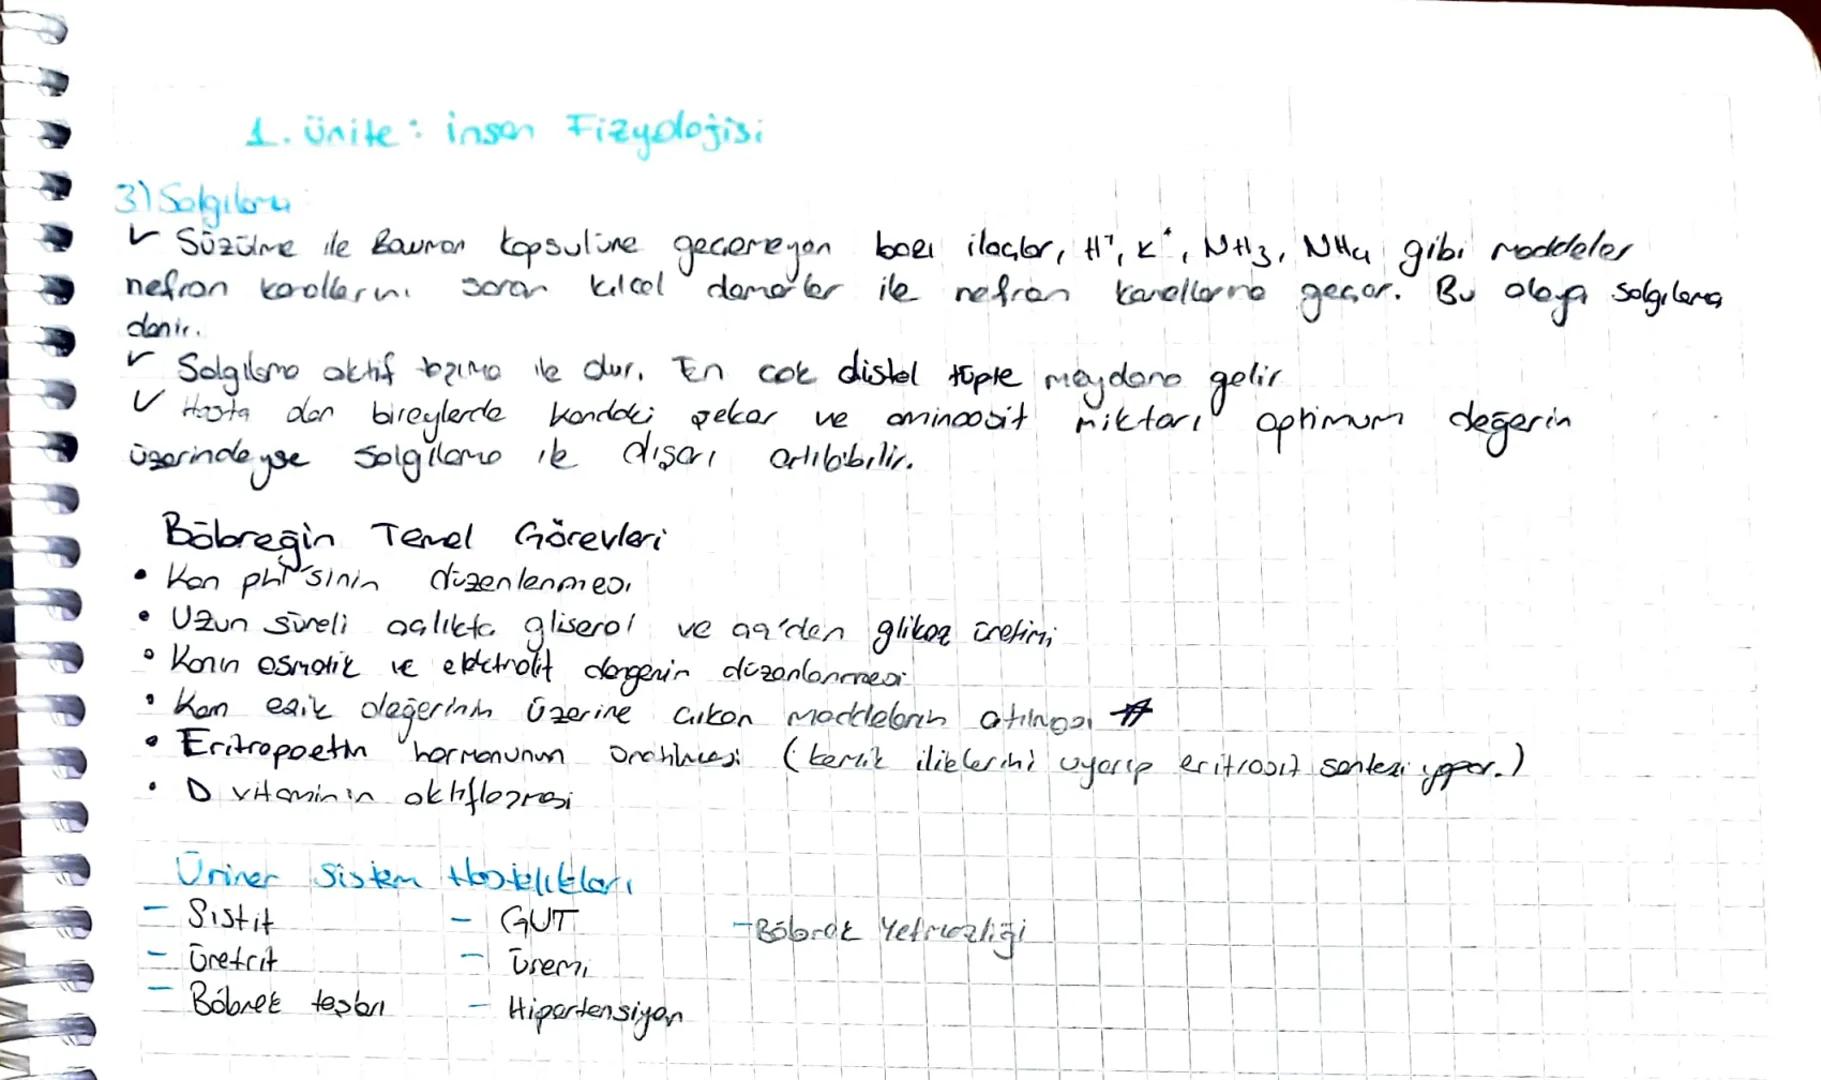 1. Ünite: İnsan Fizyolojisi
3) Salgılama
✓ Süzülme ile Bowman kapsülüne geçemeyen bazı ilaçlar, H⁺, K⁺, NH3, NH4 gibi maddeler
nefron kanallarını saran kılcal damarlar ile nefron kanallarına geçer. Bu olaya salgılama
denir.
✓ Salgılama aktif taşıma ile olur. En çok distal tüpte meydana gelir
✓ Hasta olan bireylerde kandaki şeker ve aminoasit miktarı optimum değerin
üzerindeyse salgılama ile dışarı atılabilir.
Böbreğin Temel Görevleri
• Kan pH'sinin düzenlenmesi
• Uzun süreli açlıkta gliserol ve aa'den glikoz üretimi
• Kanın osmotik ve elektrolit dengenin düzenlenmesi
• Kan eşik değerinin üzerine çıkan maddelerin atılması #
• Eritropoetin hormonunun üretilmesi (kemik iliklerini uyarıp eritrosit sentezi yapar.)
• D vitaminin aktifleşmesi
Üriner Sistem Hastalıkları
- Sistit - GUT - Böbrek Yetmezliği
- Üretrit - Üremi
- Böbrek taşları - Hipertensiyon